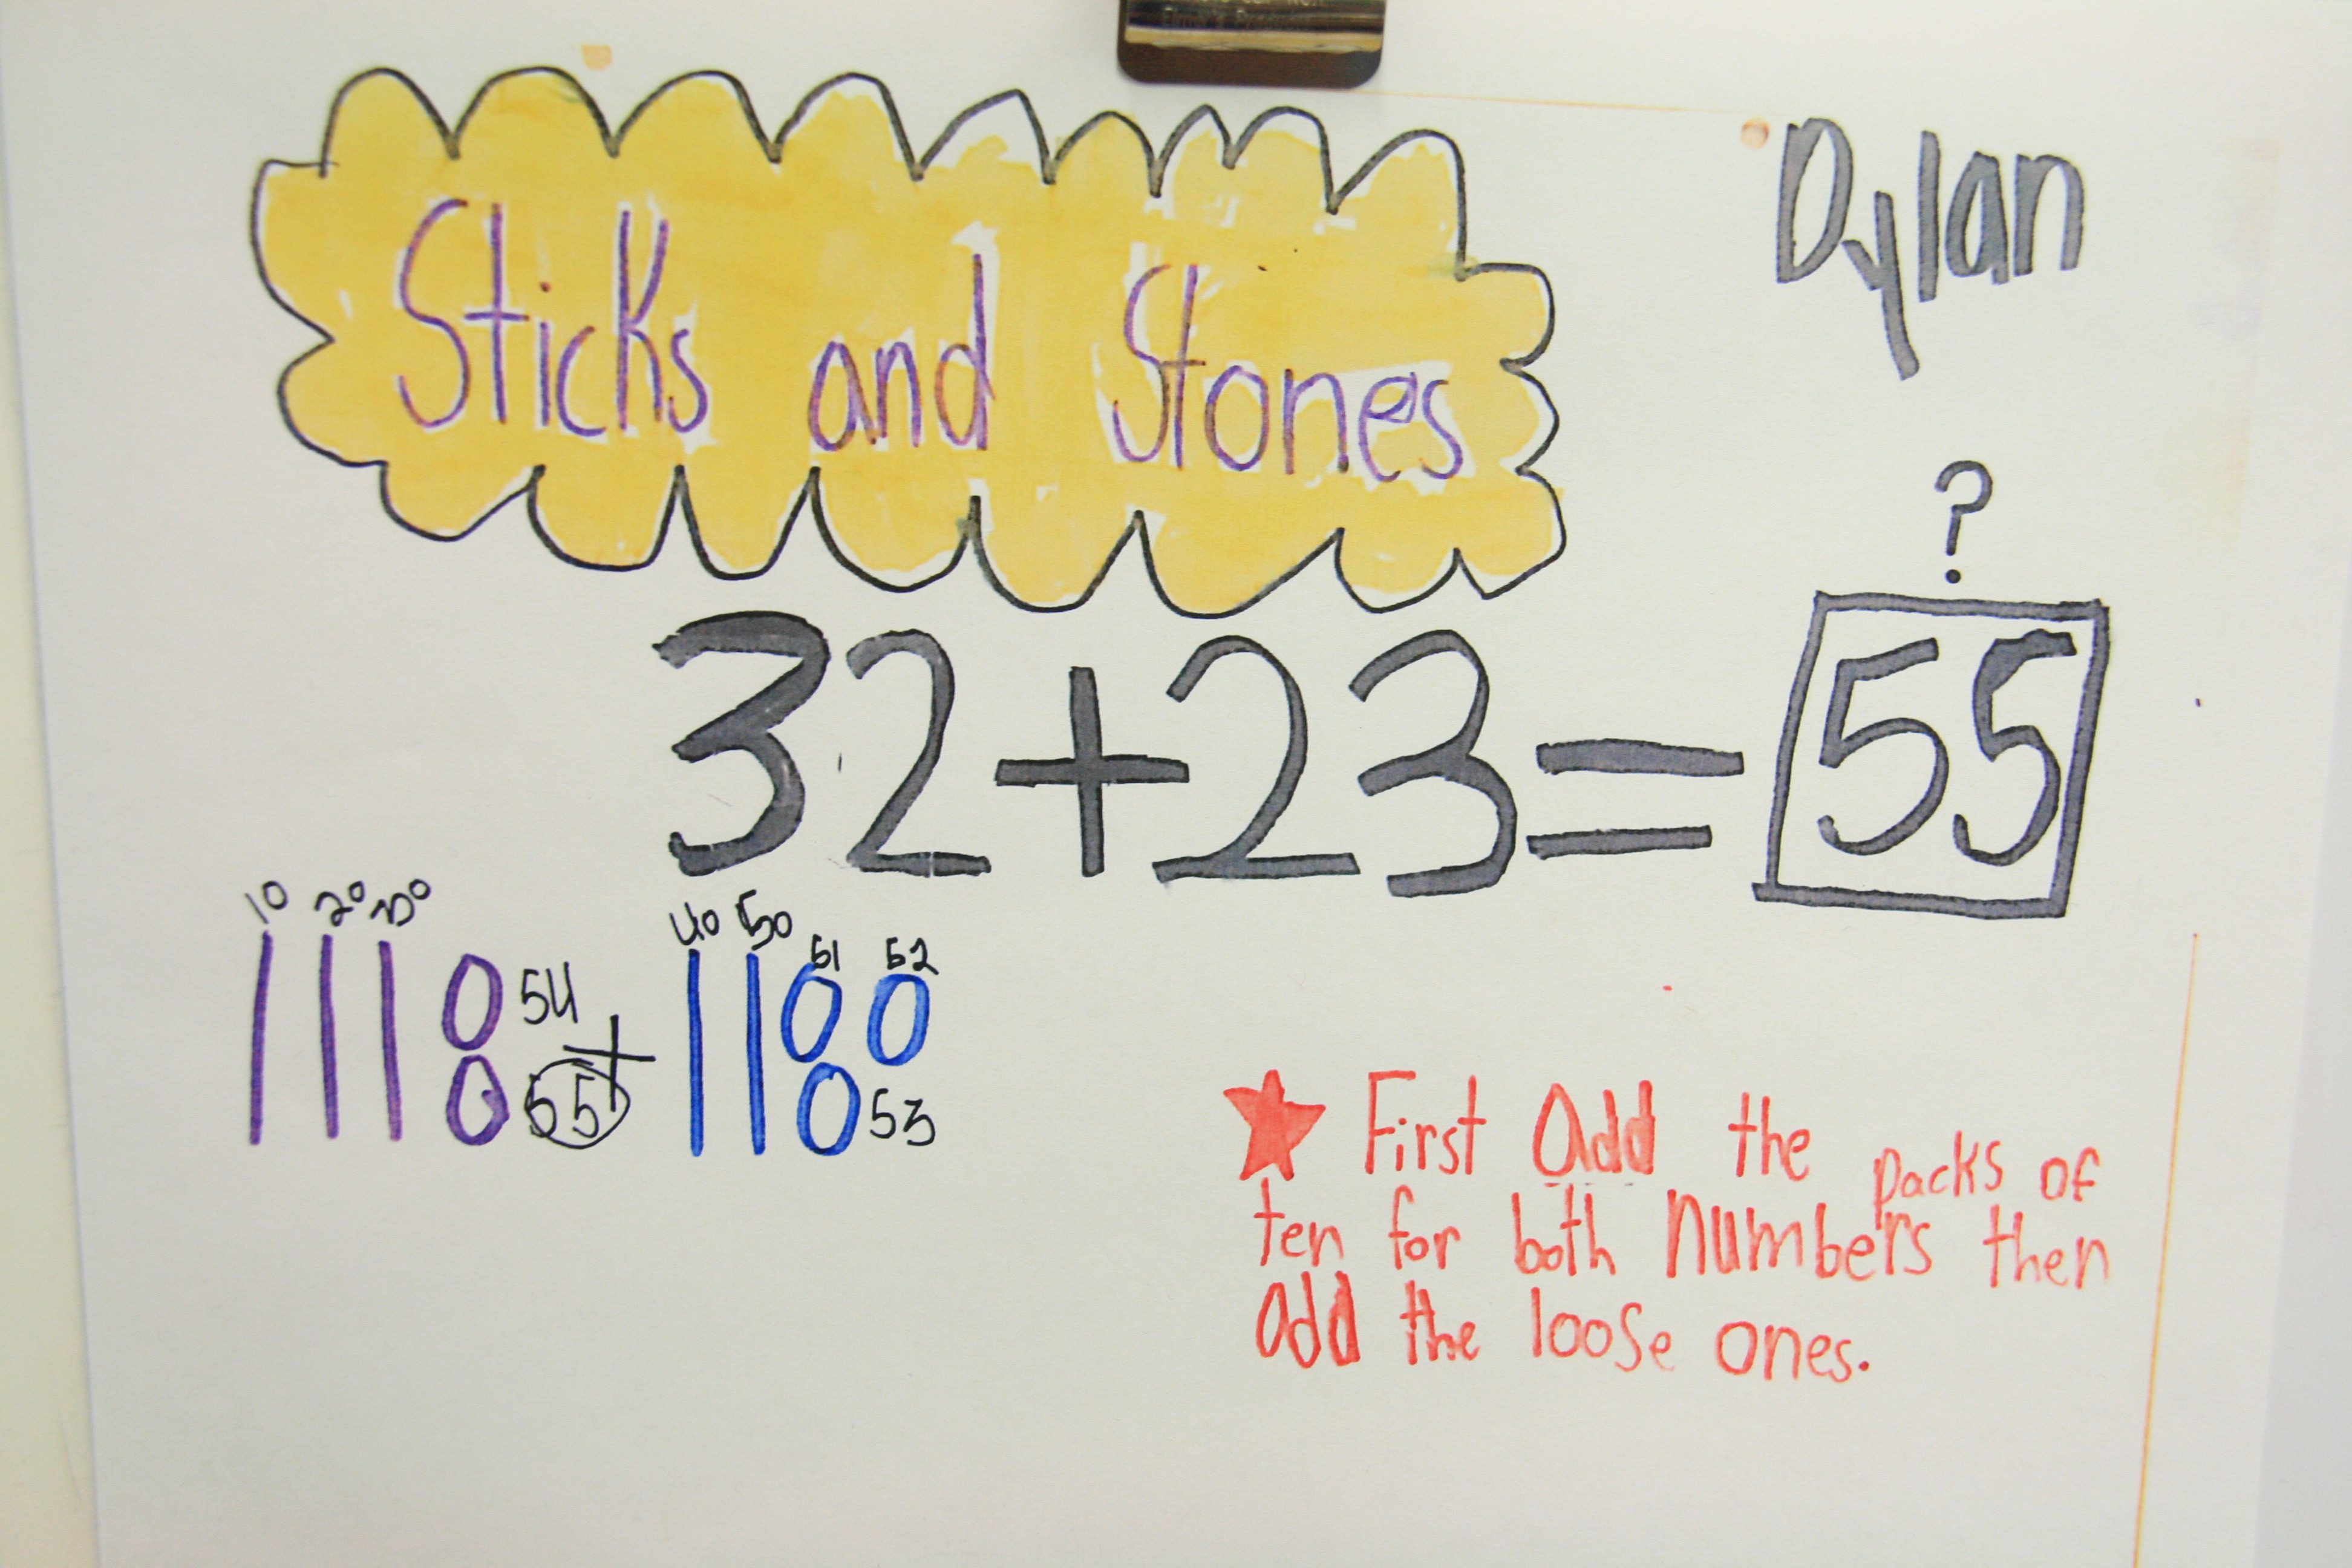 Sticks and Stones
Dylan
?
32+23=55
10 20 30
40 50
51 52
54
+
55
53
First Add the packs of
ten for both numbers then
add the loose ones.